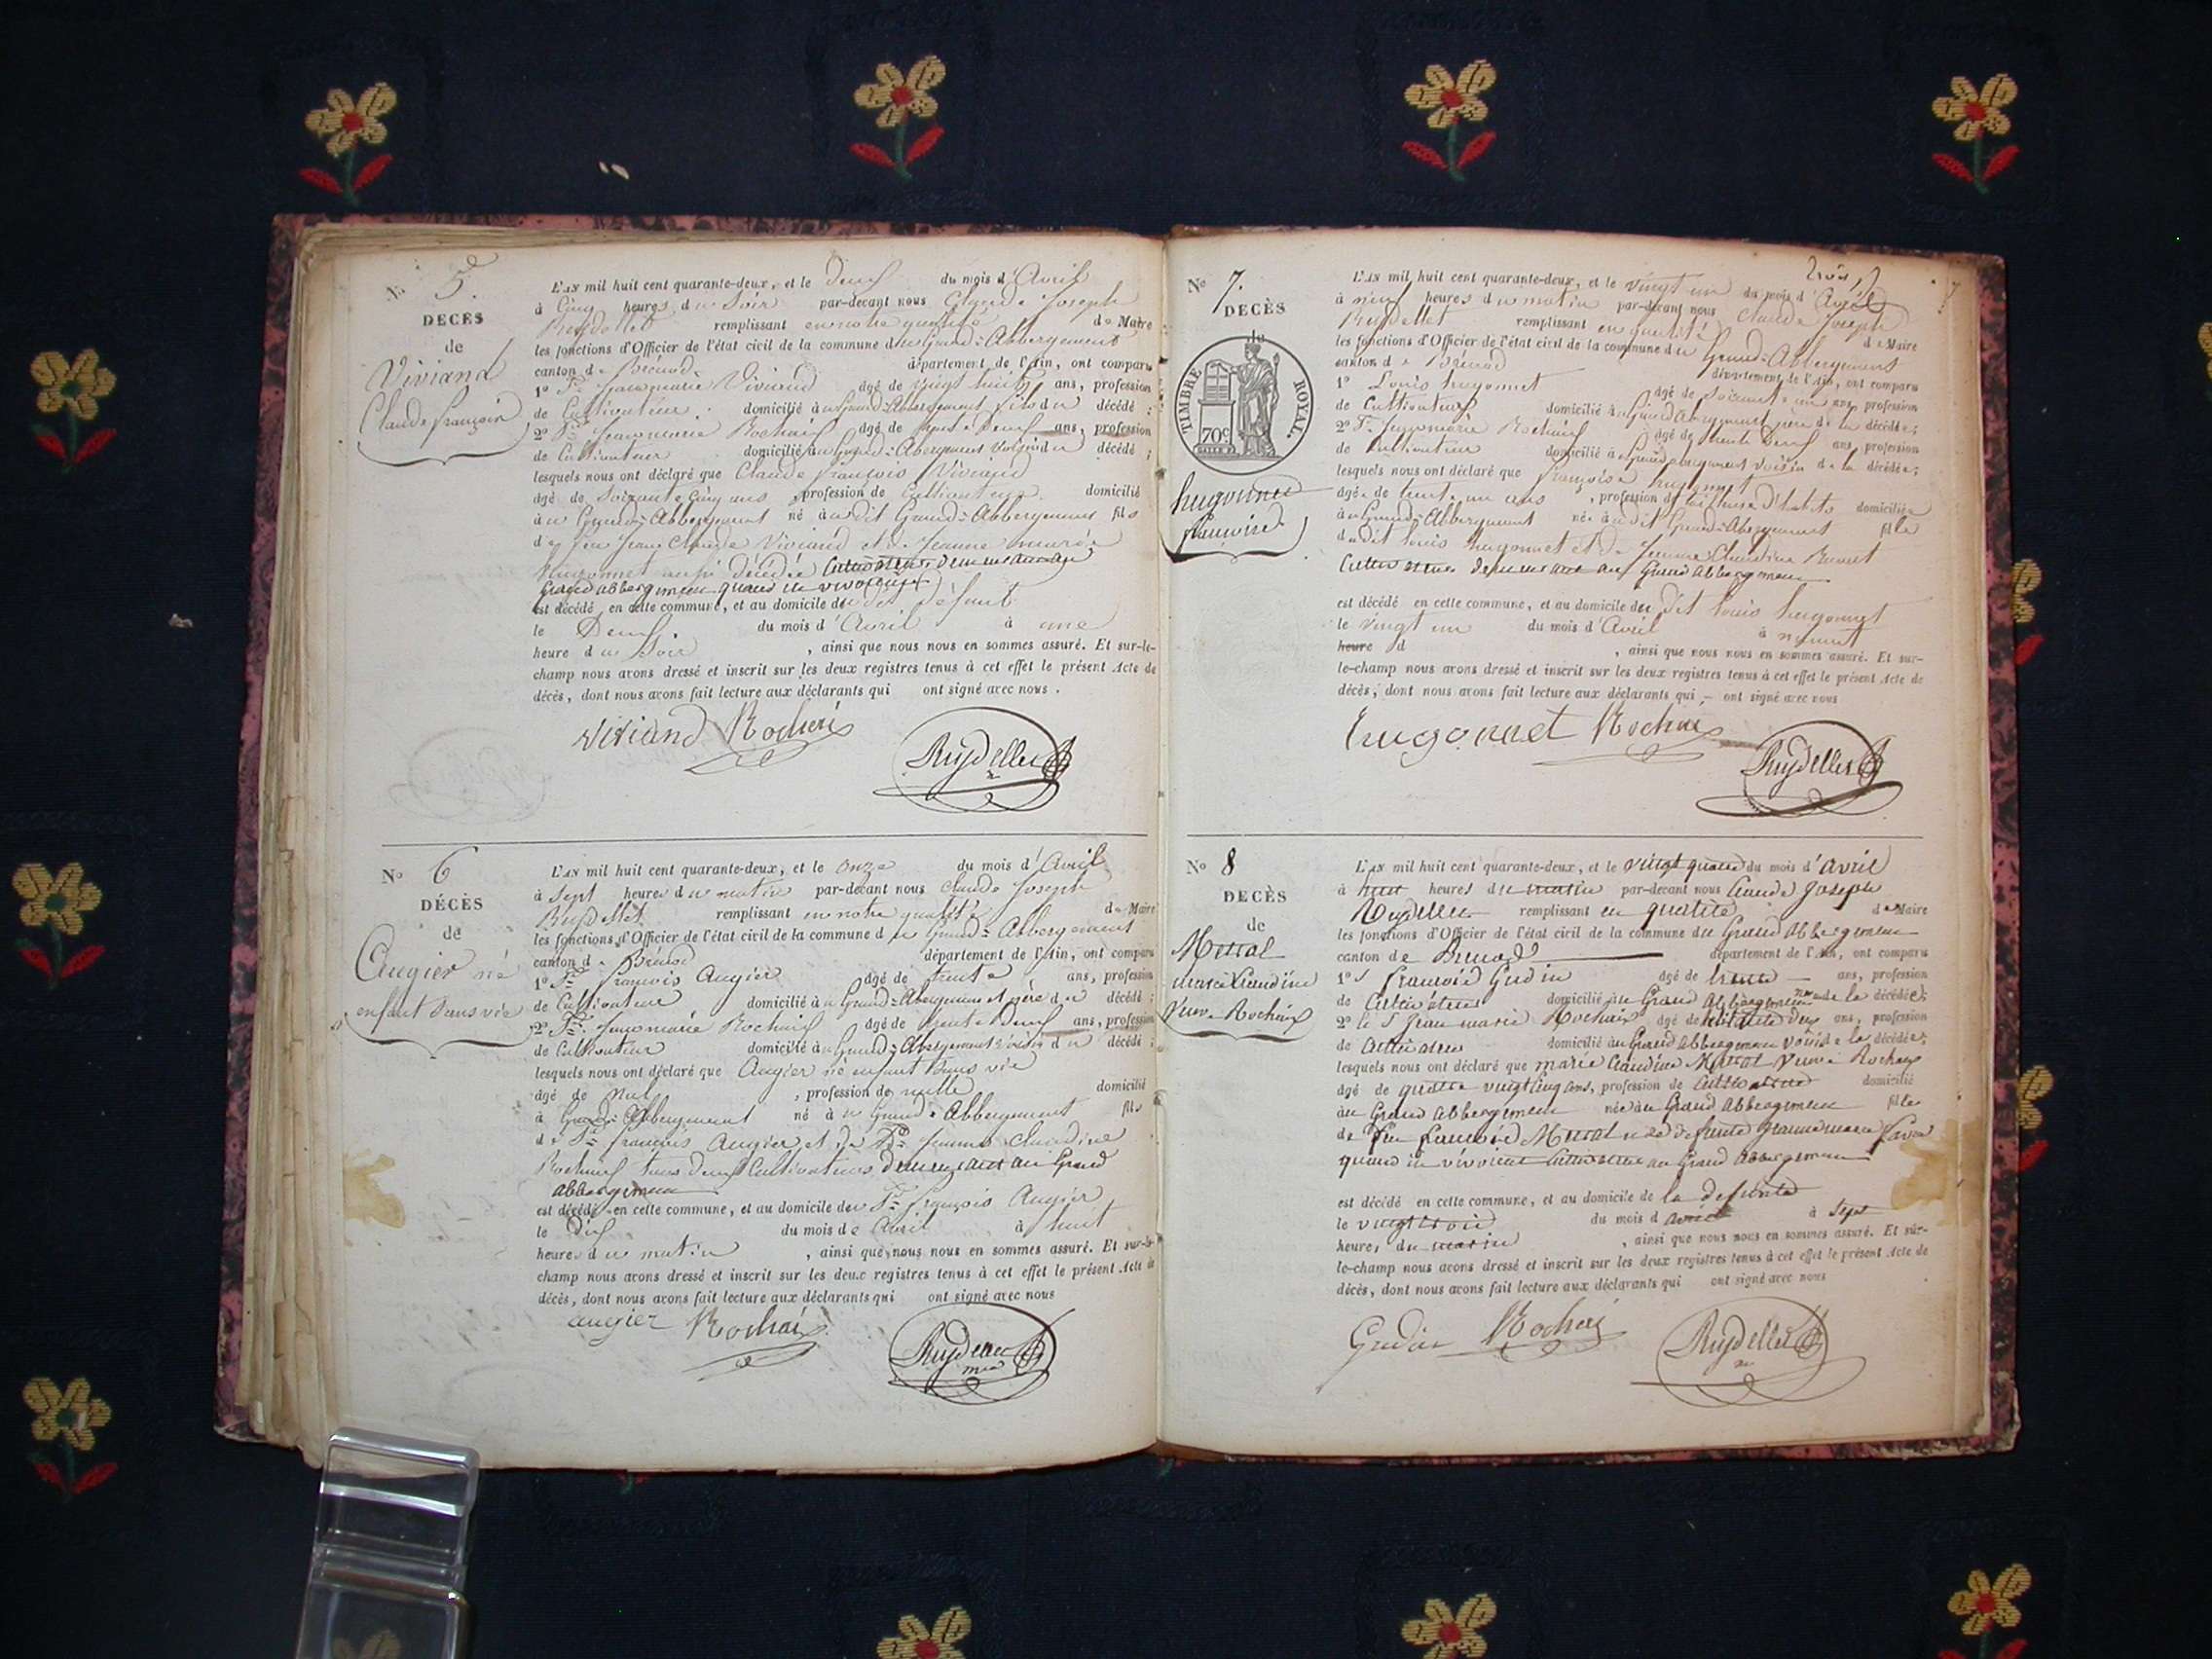 No 5e
DECÈS
de
Viviand
Claude françois
L'AN mil huit cent quarante-deux, et le Deux du mois d'Avril
à Cinq heures du Soir par-devant nous Claude Joseph
Reydellet remplissant en notre qualité de Maire
les fonctions d'Officier de l'état civil de la commune du Grand-Abbergement
canton de Brénod département de l'Ain, ont comparu
1° Viviand âgé de vingt huit ans, profession
de Cultivateur domicilié au Grand-Abbergement fils du décédé ;
2° Jean marie Rochaix âgé de trente Deux ans, profession
de Cultivateur domicilié au Grand-Abergement voisin du décédé ;
lesquels nous ont déclaré que Claude françois Viviand
âgé de Soixante Cinq ans, profession de Cultivateur domicilié
au Grand-Abbergement né au dit Grand-Abbergement fils
de feu Jean Claude Viviand et de Jeanne marie
hugonnet aussi décédée Cultivateurs demeurant au
Grand abbergement quand ils vivoient
est décédé en cette commune, et au domicile du dit défunt
le Deux du mois d'Avril à une
heure du Soir, ainsi que nous nous en sommes assuré. Et sur-le-
champ nous avons dressé et inscrit sur les deux registres tenus à cet effet le présent Acte de
décès, dont nous avons fait lecture aux déclarants qui ont signé avec nous.
viviand Rochaix
Reydellet
No 6
DÉCÈS
de
Augier né
enfant Sans vie
L'AN mil huit cent quarante-deux, et le onze du mois d'Avril
à Sept heures du matin par-devant nous Claude Joseph
Reydellet remplissant en notre qualité de Maire
les fonctions d'Officier de l'état civil de la commune du Grand-Abbergement
canton de Brénod département de l'Ain, ont comparu
1° françois Augier âgé de trente ans, profession
de Cultivateur domicilié au Grand-Abergement et père du décédé ;
2° Jean marie Rochaix âgé de trente Deux ans, profession
de Cultivateur domicilié au Grand-Abergement voisin du décédé ;
lesquels nous ont déclaré que Augier né enfant Sans vie
âgé de nul, profession de nulle domicilié
à Grand-Abbergement né à u Grand-Abbergement fils
de françois Augier et de femme Claudine
Rochaix tous deux Cultivateurs demeurant au Grand
abbergement
est décédé en cette commune, et au domicile du françois Augier
le Dix du mois de Avril à huit
heures du matin, ainsi que nous nous en sommes assuré. Et sur-le-
champ nous avons dressé et inscrit sur les deux registres tenus à cet effet le présent Acte de
décès, dont nous avons fait lecture aux déclarants qui ont signé avec nous
augier Rochaix
Reydellet
No 7.
DÉCÈS
de
TIMBRE ROYAL.
70c
hugonnet
françoise
7
L'AN mil huit cent quarante-deux, et le vingt un du mois d'Avril
à neuf heures du matin par-devant nous Claude Joseph
Reydellet remplissant en qualité de Maire
les fonctions d'Officier de l'état civil de la commune du Grand-Abbergement
canton de Brénod département de l'Ain, ont comparu
1° Louis hugonnet âgé de Soixante un ans, profession
de Cultivateur domicilié au Grand abergement père de la décédée ;
2° Jean marie Rochaix âgé de trente Deux ans, profession
de Cultivateur domicilié au Grand abergement voisin de la décédée ;
lesquels nous ont déclaré que françoise hugonnet
âgée de trente un ans, profession de tailleuse d'habits domiciliée
au Grand-Abbergement née au dit Grand-Abergement fille
du dit Louis hugonnet et de femme Claudine
Cultivateurs demeurant au Grand abbergement
est décédé en cette commune, et au domicile du dit Louis hugonnet
le vingt un du mois d'Avril à minuit
heure d, ainsi que nous nous en sommes assuré. Et sur-
le-champ nous avons dressé et inscrit sur les deux registres tenus à cet effet le présent Acte de
décès, dont nous avons fait lecture aux déclarants qui ont signé avec nous
hugonnet Rochaix
Reydellet
No 8
DECÈS
de
Mettral
marie Claudine
Veuve Rochaix
L'AN mil huit cent quarante-deux, et le vingt quatre du mois d'avril
à huit heures du matin par-devant nous Claude Joseph
Reydellet remplissant en qualité de Maire
les fonctions d'Officier de l'état civil de la commune du Grand Abbergement
canton de Brenod département de l'Ain, ont comparu
1° françois Gudin âgé de trente ans, profession
de Cultivateur domicilié au Grand Abbergement de la décédée ;
2° le S jean marie Rochaix âgé de trente deux ans, profession
de Cultivateur domicilié au Grand abbergement voisin de la décédée ;
lesquels nous ont déclaré que marie Claudine Mettral Veuve Rochaix
âgé de quatre vingt Cinq ans, profession de Cultivatrice domicilié
au Grand Abbergement née au Grand Abbergement fille
de feu françois Mettral et de defunte Jeanne marie
quand ils vivoient Cultivateurs au Grand abbergement
est décédé en cette commune, et au domicile de la defunte
le vingt trois du mois d avril à Sept
heures du matin, ainsi que nous nous en sommes assuré. Et sur-
le-champ nous avons dressé et inscrit sur les deux registres tenus à cet effet le présent Acte de
décès, dont nous avons fait lecture aux déclarants qui ont signé avec nous
Gudin Rochaix
Reydellet